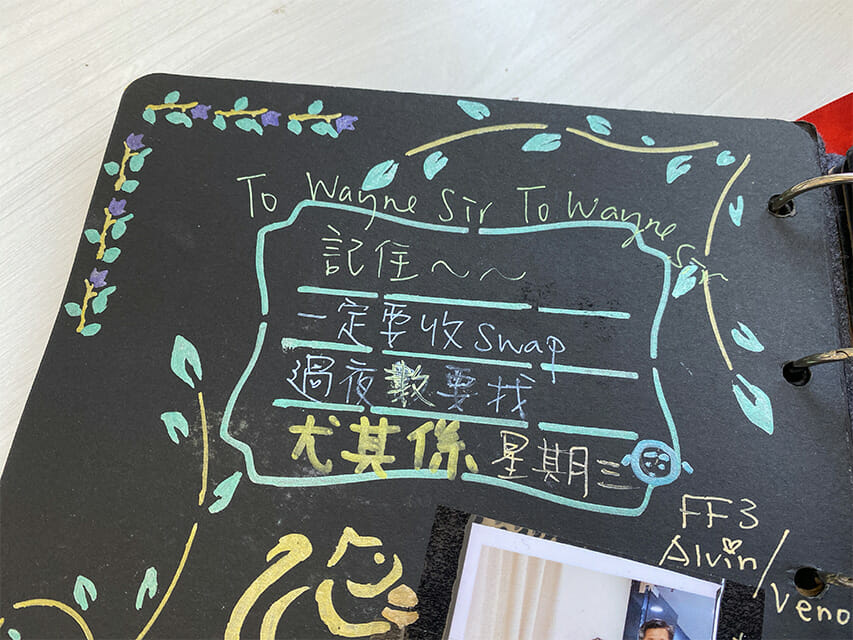 To Wayne Sir To Wayne Sir
記住~~
一定要收 Swap
過夜數要找
尤其係星期三
FF3
Alvin/
Veno